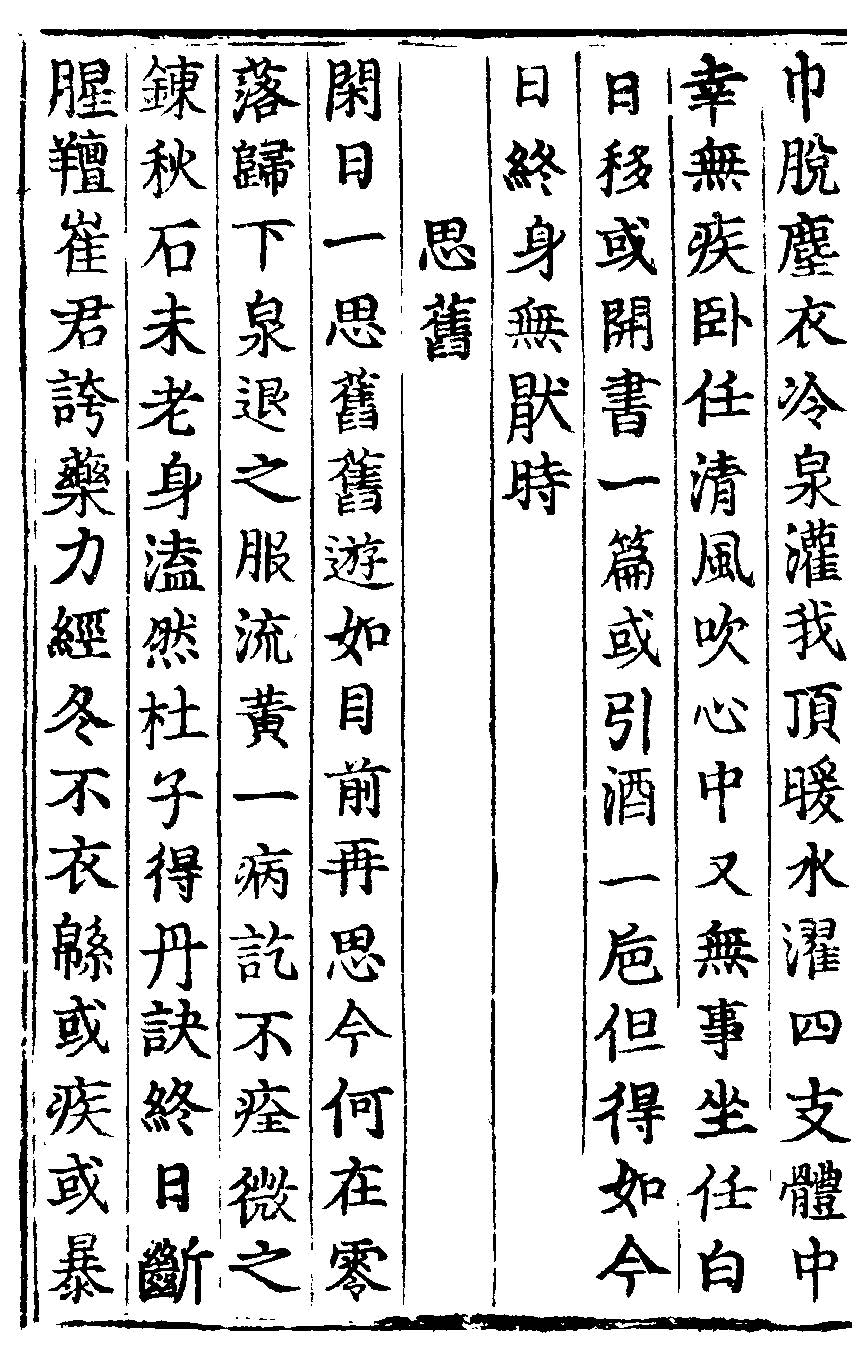 巾脫塵衣冷泉灌我頂暖水濯四支體中
幸無疾卧任清風吹心中又無事坐任白
日移或開書一篇或引酒一巵但得如今
日終身無猒時
思舊
閑日一思舊舊遊如目前再思今何在零
落歸下泉退之服流黄一病訖不痊微之
鍊秋石未老身溘然杜子得丹訣終日斷
腥羶崔君誇藥力經冬不衣緜或疾或暴